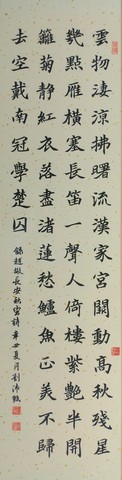 雲物淒涼拂曙流漢家宮闕動高秋殘星
幾點雁橫塞長笛一聲人倚樓紫艷半開
籬菊靜紅衣落盡渚蓮愁鱸魚正美不歸
去空戴南冠學楚囚
錄趙嘏長安秋望詩 辛丑夏月劉沛